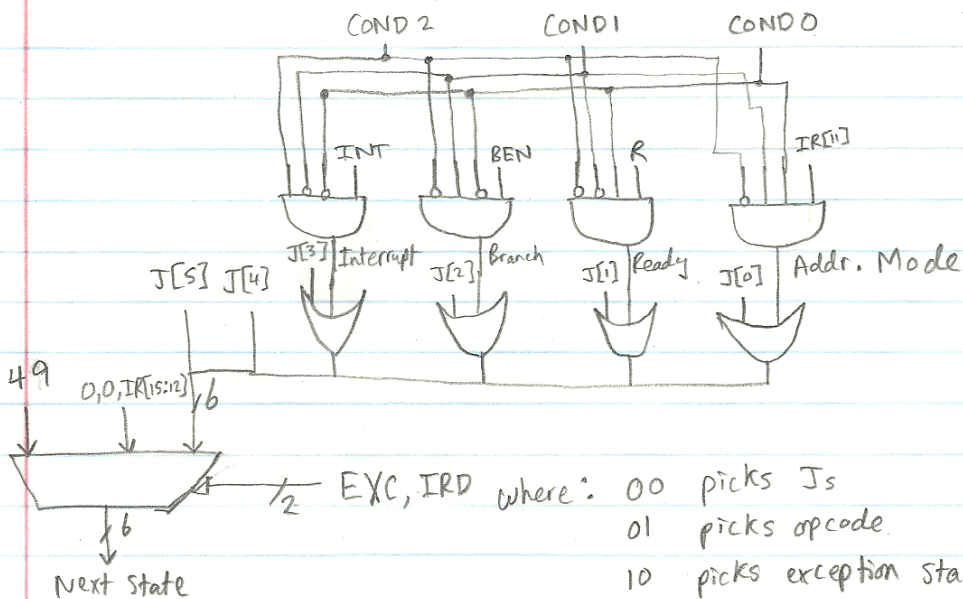 COND 2 COND1 COND 0
INT BEN R IR[11]
J[3] Interrupt J[2] Branch J[1] Ready J[0] Addr. Mode
J[5] J[4]
49 0,0,IR[15:12] 6
2 EXC, IRD where: 00 picks Js
01 picks opcode
6
Next State 10 picks exception sta